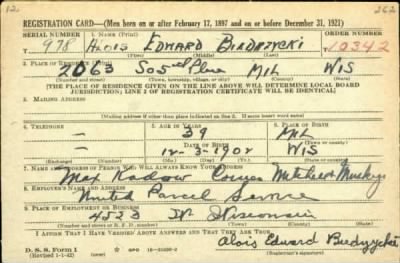 12.
262
REGISTRATION CARD—(Men born on or after February 17, 1897 and on or before December 31, 1921)
SERIAL NUMBER 1. NAME (Print) ORDER NUMBER
978 Alois EDWARD BIEDRZYCKI 10342
(First) (Middle) (Last)
2. PLACE OF RESIDENCE (Print)
2063 So 5 Place MIL WIS
(Number and street) (Town, township, village, or city) (County) (State)
[THE PLACE OF RESIDENCE GIVEN ON THE LINE ABOVE WILL DETERMINE LOCAL BOARD
JURISDICTION; LINE 2 OF REGISTRATION CERTIFICATE WILL BE IDENTICAL]
3. MAILING ADDRESS
[Mailing address if other than place indicated on line 2. If same insert word same]
4. TELEPHONE 5. AGE IN YEARS 6. PLACE OF BIRTH
— 39 MIL
DATE OF BIRTH (Town or county)
— 12-3-1902 WIS
(Exchange) (Number) (Mo.) (Day) (Yr.) (State or country)
7. NAME AND ADDRESS OF PERSON WHO WILL ALWAYS KNOW YOUR ADDRESS
Max Radow Mitchell
8. EMPLOYER'S NAME AND ADDRESS
United Parcel Service
9. PLACE OF EMPLOYMENT OR BUSINESS
4523 W Wisconsin
(Number and street or R. F. D. number) (Town) (County) (State)
I AFFIRM THAT I HAVE VERIFIED ABOVE ANSWERS AND THAT THEY ARE TRUE.
D. S. S. Form 1
(Revised 1-1-42) GPO Alois Edward Biedrzycki
(Registrant's signature)